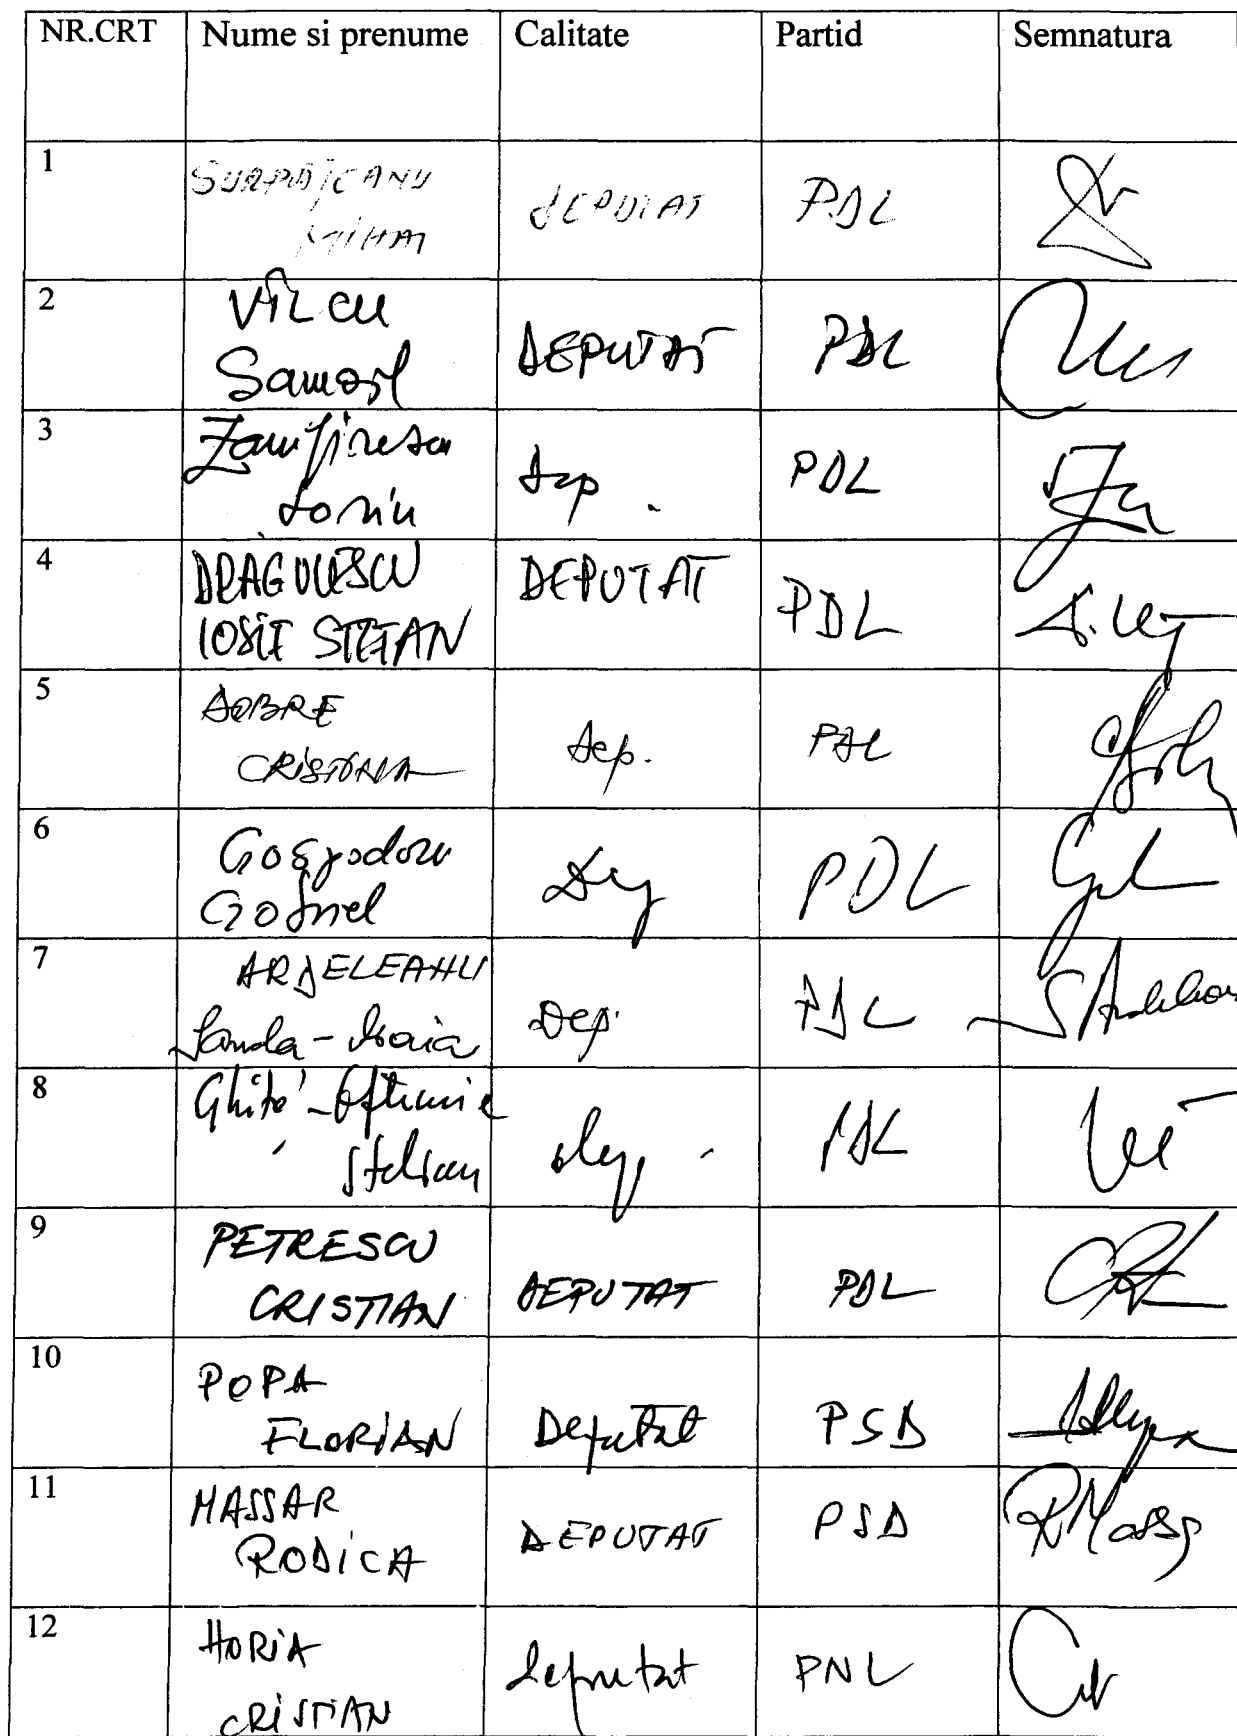 NR.CRT Nume si prenume Calitate Partid Semnatura
1 SURPĂȚEANU MIHAI DEPUTAT PDL
2 VÎLCU Samoil DEPUTAT PDL
3 Zamfirescu Sorin Dep. PDL
4 DRAGULESCU IOSIF STEFAN DEPUTAT PDL
5 DOBRE CRISTIANA Dep. PDL
6 Gospodaru Gabriel Dep PDL
7 ARDELEANU Sanda-Maria Dep. PDL
8 Ghiță-Eftemie Stelian dep. PDL
9 PETRESCU CRISTIAN DEPUTAT PDL
10 POPA FLORIAN Deputat PSD
11 MASSAR RODICA DEPUTAT PSD RMassar
12 HORIA CRISTIAN deputat PNL